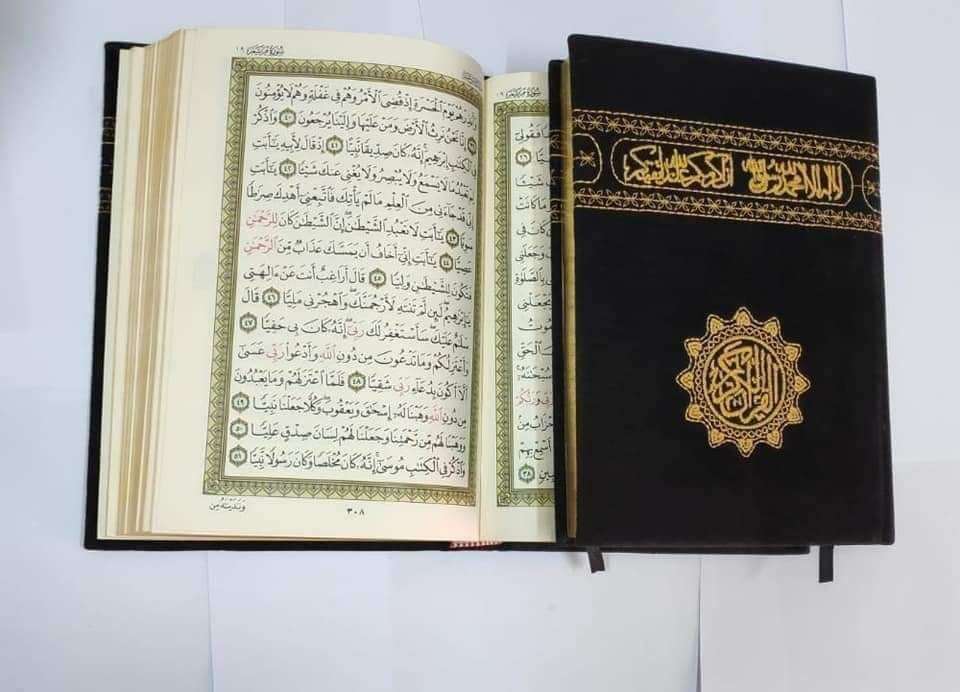 سُورَةُ مَرْيَمَ ١٩
وَأَنذِرْهُمْ يَوْمَ الْحَسْرَةِ إِذْ قُضِيَ الْأَمْرُ وَهُمْ فِي غَفْلَةٍ وَهُمْ لَا يُؤْمِنُونَ
٣٩ إِنَّا نَحْنُ نَرِثُ الْأَرْضَ وَمَنْ عَلَيْهَا وَإِلَيْنَا يُرْجَعُونَ ٤٠ وَاذْكُرْ
فِي الْكِتَٰبِ إِبْرَٰهِيمَ إِنَّهُ كَانَ صِدِّيقًا نَّبِيًّا ٤١ إِذْ قَالَ لِأَبِيهِ يَٰٓأَبَتِ
لِمَ تَعْبُدُ مَا لَا يَسْمَعُ وَلَا يُبْصِرُ وَلَا يُغْنِي عَنكَ شَيْـًٔا ٤٢ يَٰٓأَبَتِ
إِنِّي قَدْ جَاءَنِي مِنَ الْعِلْمِ مَا لَمْ يَأْتِكَ فَاتَّبِعْنِي أَهْدِكَ صِرَٰطًا
سَوِيًّا ٤٣ يَٰٓأَبَتِ لَا تَعْبُدِ الشَّيْطَٰنَ إِنَّ الشَّيْطَٰنَ كَانَ لِلرَّحْمَٰنِ
عَصِيًّا ٤٤ يَٰٓأَبَتِ إِنِّي أَخَافُ أَن يَمَسَّكَ عَذَابٌ مِّنَ الرَّحْمَٰنِ
فَتَكُونَ لِلشَّيْطَٰنِ وَلِيًّا ٤٥ قَالَ أَرَاغِبٌ أَنتَ عَنْ ءَالِهَتِي
يَٰٓإِبْرَٰهِيمُ لَئِن لَّمْ تَنتَهِ لَأَرْجُمَنَّكَ وَاهْجُرْنِي مَلِيًّا ٤٦ قَالَ
سَلَٰمٌ عَلَيْكَ سَأَسْتَغْفِرُ لَكَ رَبِّي إِنَّهُ كَانَ بِي حَفِيًّا ٤٧
وَأَعْتَزِلُكُمْ وَمَا تَدْعُونَ مِن دُونِ اللَّهِ وَأَدْعُوا رَبِّي عَسَىٰ
أَلَّا أَكُونَ بِدُعَاءِ رَبِّي شَقِيًّا ٤٨ فَلَمَّا اعْتَزَلَهُمْ وَمَا يَعْبُدُونَ
مِن دُونِ اللَّهِ وَهَبْنَا لَهُ إِسْحَٰقَ وَيَعْقُوبَ وَكُلًّا جَعَلْنَا نَبِيًّا ٤٩
وَوَهَبْنَا لَهُم مِّن رَّحْمَتِنَا وَجَعَلْنَا لَهُمْ لِسَانَ صِدْقٍ عَلِيًّا ٥٠
وَاذْكُرْ فِي الْكِتَٰبِ مُوسَىٰ إِنَّهُ كَانَ مُخْلَصًا وَكَانَ رَسُولًا نَّبِيًّا ٥١
وَنَٰدَيْنَٰهُ مِن
٣٠٨
سُورَةُ مَرْيَمَ ١٩
فَقُولِي
٢٦
شَيْـًٔا
مَا كَانَتْ
كَانَ فِي
وَجَعَلَنِي
بِالصَّلَوٰةِ
يَجْعَلْنِي
أَمُوتُ
الْحَقِّ
سُبْحَٰنَهُ
رَبِّي وَرَبُّكُمْ
مِن
أَسْمِعْ بِهِمْ
٣٨
لا إله إلا الله محمد رسول الله
القرآن الكريم